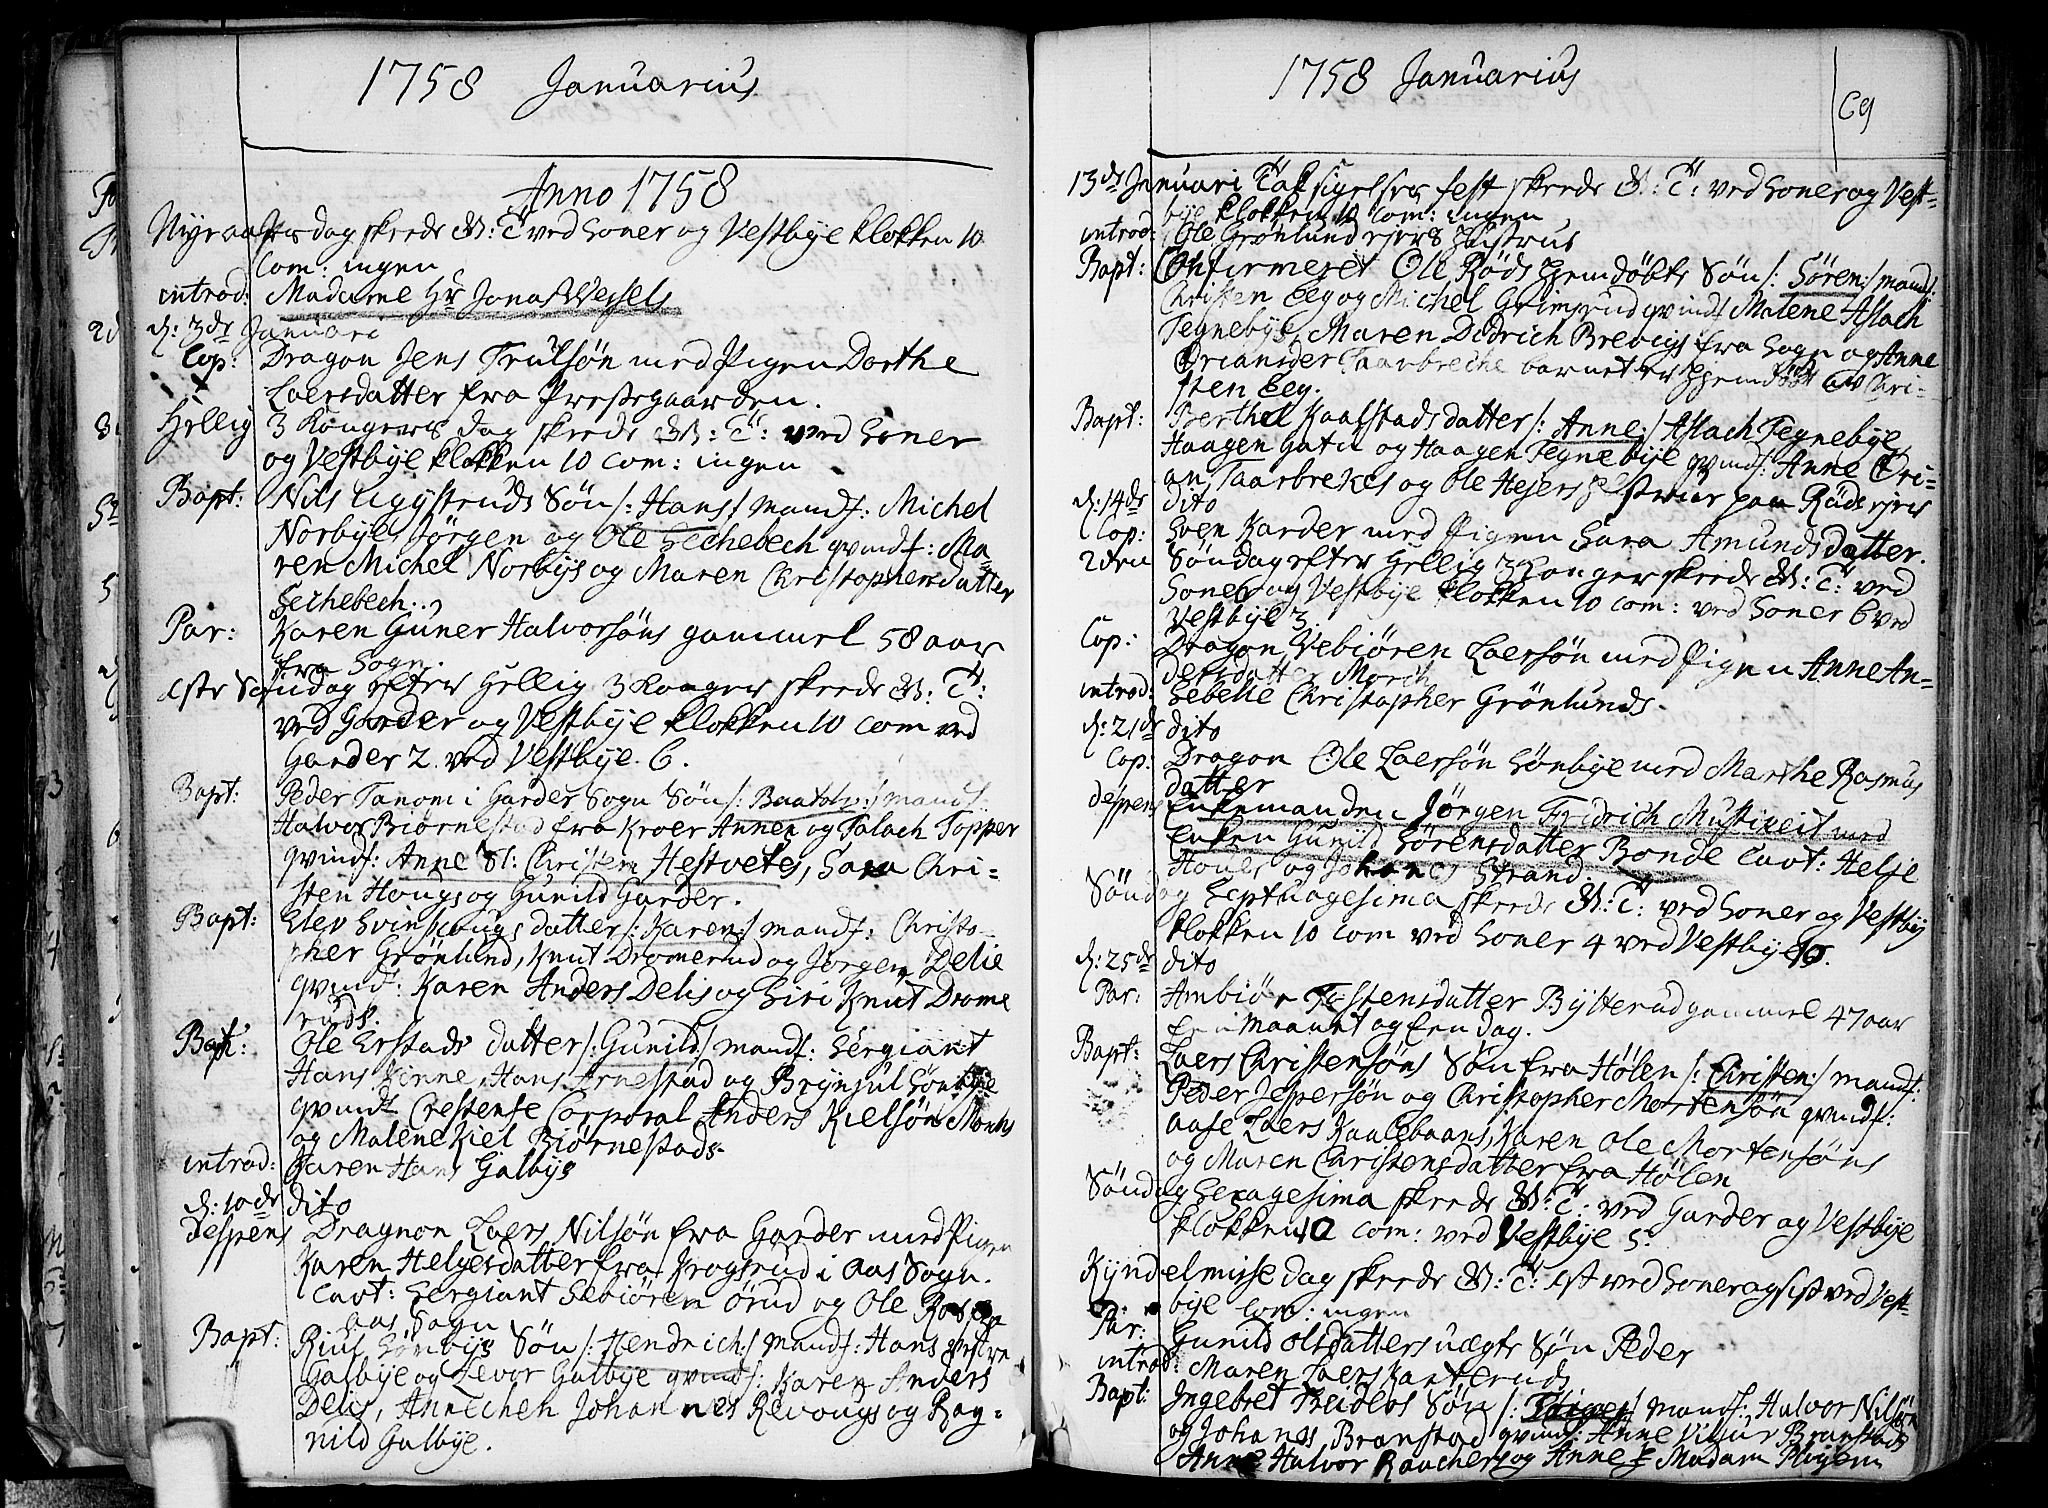 1758 Januarius
Anno 1758
Nyeaarsdag skeede G: T ved Soner og Vestbye klokken 10
Com: ingen
introd: Madame Hr Jonas Wessels
d: 3de Januari
Cop: Dragon Jens Trulsøn med Pigen Dorthe
Laersdatter fra Prestegaarden.
Hellig 3 Kongers dag skeede G: T: ved Soner
og Vestbye klokken 10 Com: ingen
Bapt: Nils Søn /: Hans / mandf: Michel
Norbye, Jørgen og Ole Sechebech qvindf: Ma=
ren Michel Norbys og Maren Christophersdatter
Sechebech.
Par: Karen Guner Halvorsøns gammel 58 aar
fra Sogn.
1ste Søndag efter Hellig 3 Konger skeede G: T:
ved Garder og Vestbye klokken 10 Com ved
Garder 2 ved Vestbye 6.
Bapt: Peder Tanom i Garder Sogn Søn /: :/ mandf:
Halvor Biørnestad fra Kroer og Topper
qvindf: Anne Sl: Christen Hestvets, Sara Chri=
sten Hougs og Gunild Garder.
Bapt: Elev datter /: Karen :/ mandf: Christo=
pher Grønlund, Knut Dromerud og Jørgen Delie
qvindf: Karen Anders Delis og Siri Knut Drome
ruds.
Bapt: Ole Erstads datter /: Gunild / mandf: Sergiant
Hans Hans Arnestad og Brynjul Sønbye
qvindf Corporal Anders Kielsøn
og Malene Kiel Biørnestads.
introd: Karen Hans Galbys
d: 10de dito
despens Dragon Laers Nilsøn fra Garder med Pigen
Karen Helgesdatter fra Krogsrud i Aas Sogn.
Cavt: Sergiant Sebiøren Ørud og Ole
Aas Sogn
Bapt: Sønbys Søn /: Hendrich :/ mandf: Hans vestre
Galbye og Levor Galbye qvindf: Karen Anders
Delis, Annechen Johannes Revougs og Rag=
nild Galbye.
1758 Januarius
13de Januari Taksigelses fest skeede G: T: ved Soner og Vest=
bye klokken 10 Com: ingen
introd: Ole Grønlund ejers Hustrue
Bapt: Confirmeret Ole Røds Hjemdøbte Søn /: Søren :/ mandf:
Christen Eeg og Michel Grimsrud qvindf Malene Aslach
Tegnebye, Maren Didrich Brevigs fra Sogn og Anne
barnet er Hjemdøbt av Chri=
sten Eeg.
Bapt: Berthel Kaalstads datter /: Anne :/ Aslach Tegnebye
Haagen Gatu og Haagen Tegnebye qvindf: Anne Cri=
an Taarbrekes og Ole Hejers paa Røds ejers
d: 14de dito
Cop: Sven Karder med Pigen Sara Amundsdatter.
2den Søndag efter Hellig 3 Konger skeede G: T: ved
Soner og Vestbye klokken 10 Com: ved Soner 6 ved
Vestbye 3.
Cop: Dragon Vebiøren Laersøn med Pigen Anne An=
dersdatter Morch
introd: Sebelle Christopher Grønlunds.
d: 21de dito
Cop: Dragon Ole Laersøn Sønbye med Marthe Rasmus
datter
despens Enkemanden Jørgen Fridrich med
Enken Gunild Sørensdatter Bonde Cavt: Helje
og Johanes Strand.
Søndag Septuagesima skeede G: T: ved Soner og Vestby
klokken 10 Com ved Soner 4 ved Vestbye 10.
d: 25de dito
Par: Ambiør Tostensdatter Bylterud gammel 47 aar
Een maanet og Een dag.
Bapt: Laers Christensøns Søn fra Hølen /: Christen :/ mandf:
Peder Jespersøn og Christopher Mortensøn qvindf:
Aase Laers Kaalebaans, Karen Ole Mortensøns
og Maren Christensdatter fra Hølen
Søndag Sexagesima skeede G: T: ved Garder og Vestbye
klokken 10 Com: ved Vestbye 5.
Kyndelmisse dag skeede G: T: 1st ved Soner og sist ved Vest=
bye Com: ingen
Par: Gunild Olsdatters uægte Søn Peder
introd: Maren Laers
Bapt: Ingebret Søn /: / mandf: Halvor Nilsøn
og Johanes Branstad qvindf: Anne Branstads
Anne Halvor og Anne Madam